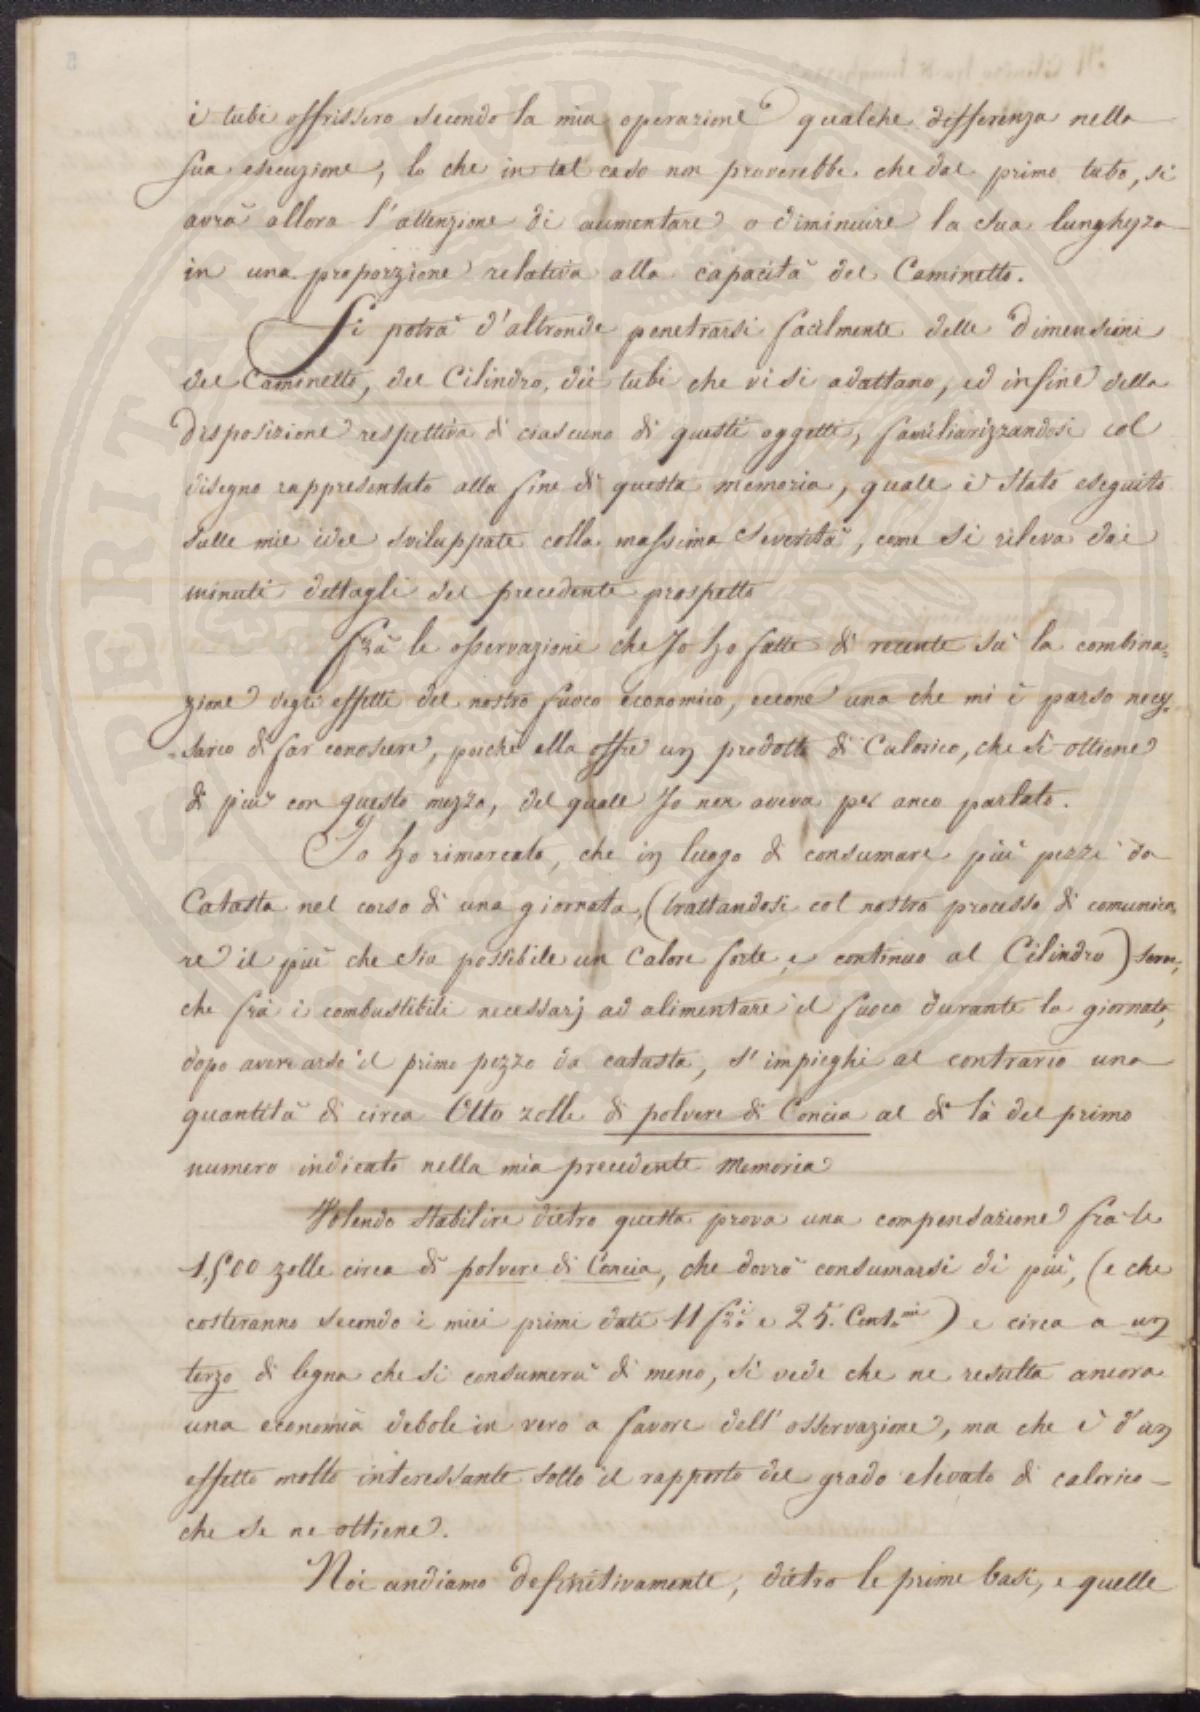 i tubi offrissero secondo la mia operazione qualche differenza nella
sua esecuzione, lo che in tal caso non proverebbe che dal primo tubo, si
avrà allora l'attenzione di aumentare o diminuire la sua lunghezza
in una proporzione relativa alla capacità del Caminetto.
Si potrà d'altronde penetrarsi facilmente delle dimensioni
del Caminetto, del Cilindro, dei tubi che vi si adattano, ed infine della
disposizione respettiva di ciascuno di questi oggetti, familiarizzandosi col
disegno rappresentato alla fine di questa memoria, quale è stato eseguito
sulle mie idee sviluppate colla massima severità, come si rileva dai
minuti dettagli del precedente prospetto
Frà le osservazioni che Io ho fatte di recente sù la combina=
zione degli effetti del nostro fuoco economico, eccone una che mi è parso neces=
=sario di far conoscere, poichè ella offre un prodotto di Calorico, che si ottiene
di più con questo mezzo, del quale Io non aveva per anco parlato.
Io ho rimarcato, che in luogo di consumare più pezzi da
Catasta nel corso di una giornata, (trattandosi col nostro processo di comunica=
re il più che sia possibile un Calore forte, e continuo al Cilindro)
che frà i combustibili necessarj ad alimentare il fuoco durante la giornata,
dopo avere arso il primo pezzo da catasta, s'impieghi al contrario una
quantità di circa Otto zolle di polvere di Concia al di là del primo
numero indicato nella mia precedente Memoria
Volendo stabilire dietro questa prova una compensazione frà le
1,500 zolle circa di polvere di Concia, che dovrà consumarsi di più, (e che
costeranno secondo i miei primi dati 11 fri e 25. Cent.mi) e circa a un
terzo di legna che si consumerà di meno, si vede che ne resulta ancora
una economia debole in vero a favore dell'osservazione, ma che è d'un
effetto molto interessante sotto il rapporto del grado elevato di calorico
che se ne ottiene.
Noi andiamo definitivamente, dietro le prime basi, e quelle